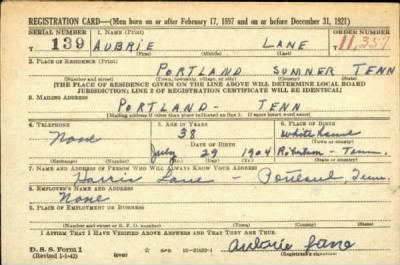 REGISTRATION CARD—(Men born on or after February 17, 1897 and on or before December 31, 1921)
SERIAL NUMBER 1. NAME (Print) ORDER NUMBER
T 139 AUBRIE LANE T 11,357
(First) (Middle) (Last)
2. PLACE OF RESIDENCE (Print)
PORTLAND SUMNER TENN
(Number and street) (Town, township, village, or city) (County) (State)
[THE PLACE OF RESIDENCE GIVEN ON THE LINE ABOVE WILL DETERMINE LOCAL BOARD
JURISDICTION; LINE 2 OF REGISTRATION CERTIFICATE WILL BE IDENTICAL]
3. MAILING ADDRESS
PORTLAND - TENN
[Mailing address if other than place indicated on line 2. If same insert word same]
4. TELEPHONE 5. AGE IN YEARS 6. PLACE OF BIRTH
None 38 White
DATE OF BIRTH (Town or county)
July 29 1904 Robertson - Tenn.
(Exchange) (Number) (Mo.) (Day) (Yr.) (State or country)
7. NAME AND ADDRESS OF PERSON WHO WILL ALWAYS KNOW YOUR ADDRESS
Lane - Portland, Tenn.
8. EMPLOYER'S NAME AND ADDRESS
None
9. PLACE OF EMPLOYMENT OR BUSINESS
(Number and street or R. F. D. number) (Town) (County) (State)
I AFFIRM THAT I HAVE VERIFIED ABOVE ANSWERS AND THAT THEY ARE TRUE.
D. S. S. Form 1
(Revised 1-1-42) (over) Aubrie Lane
(Registrant's signature)